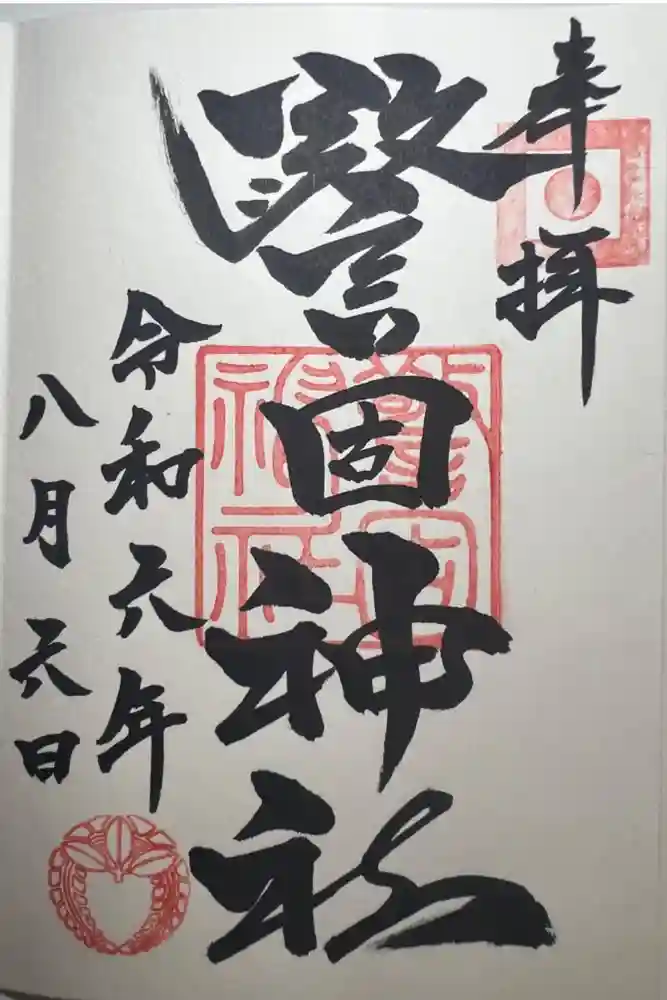 奉拝
警固神社
令和六年
八月六日
警固
神社